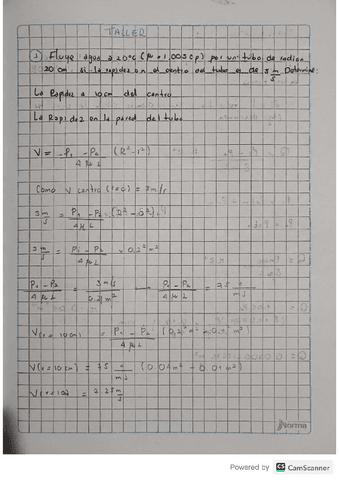 TALLER
1) Fluye agua a 20°C (μ = 1.005 cp) por un tubo de radio
20 cm. si la rapidez en el centro del tubo es de 3 m/s Determine:
La Rapidez a 10 cm del centro
La Rapidez en la pared del tubo
V = P₁ - P₂ / 4 μ L (R² - r²)
Como V centro (r=0) = 3 m/s
3 m/s = P₁ - P₂ / 4 μ L (R² - 0²)
3 m/s = P₁ - P₂ / 4 μ L × 0,2² m²
P₁ - P₂ / 4 μ L = 3 m/s / 0,2² m² → P₁ - P₂ / 4 μ L = 75
V(r = 10 cm) = P₁ - P₂ / 4 μ L (0,2² m² - 0,1² m²)
V(r = 10 cm) = 75 (0.04 m² - 0.01 m²)
V(r = 10) = 2.25 m/s
norma
Powered by CS CamScanner